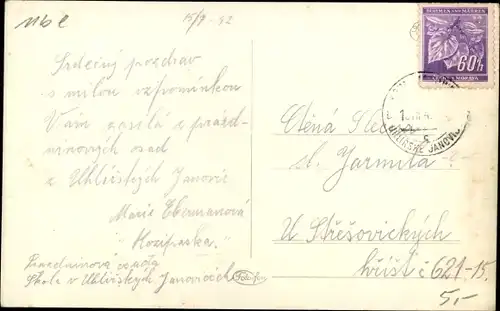 15/7 - 42
Srdečný pozdrav
s milou vzpomínkou
Vám zasílá z prázd-
ninových osad
z Uhlířských Janovic
Marie
Prázdninová osada
Škola v Uhlířských Janovicích
BÖHMEN UND MÄHREN
60h
UHLÍŘSKÉ JANOVICE
Ctěná Slečna
sl. Jarmila
U Střešovických
hřišť č 621-15.
5,-